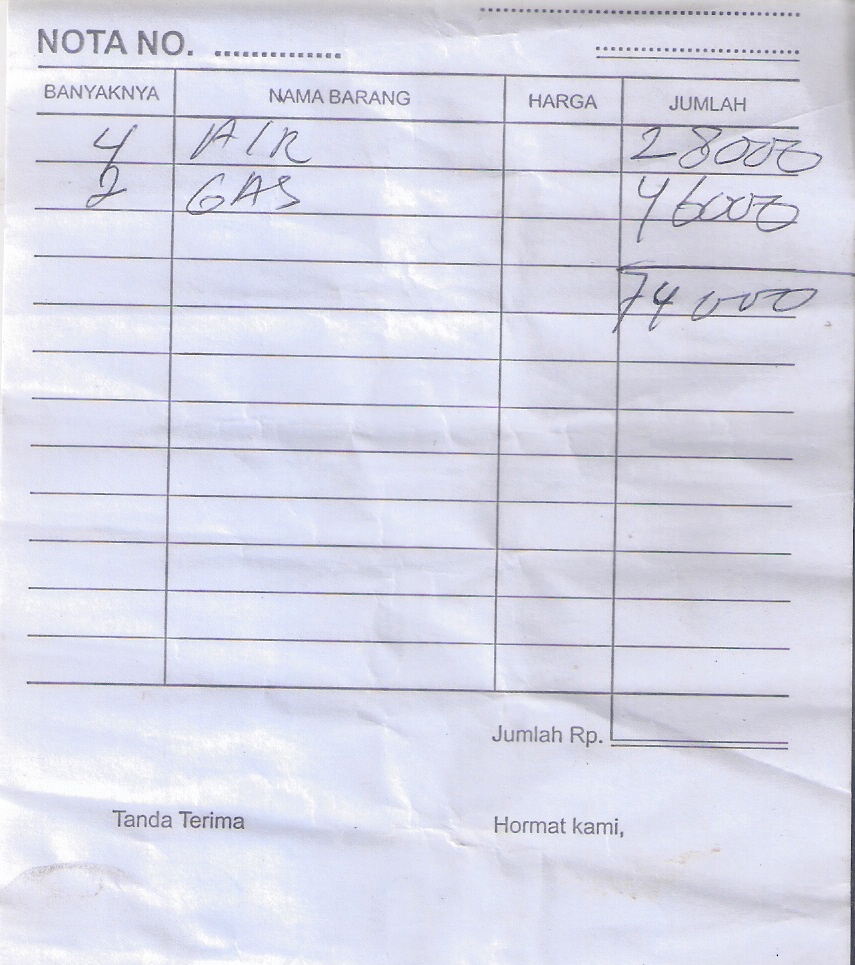 NOTA NO. ...............
BANYAKNYA NAMA BARANG HARGA JUMLAH
4 AIR 28000
2 GAS 46000
74000
Jumlah Rp.
Tanda Terima Hormat kami,